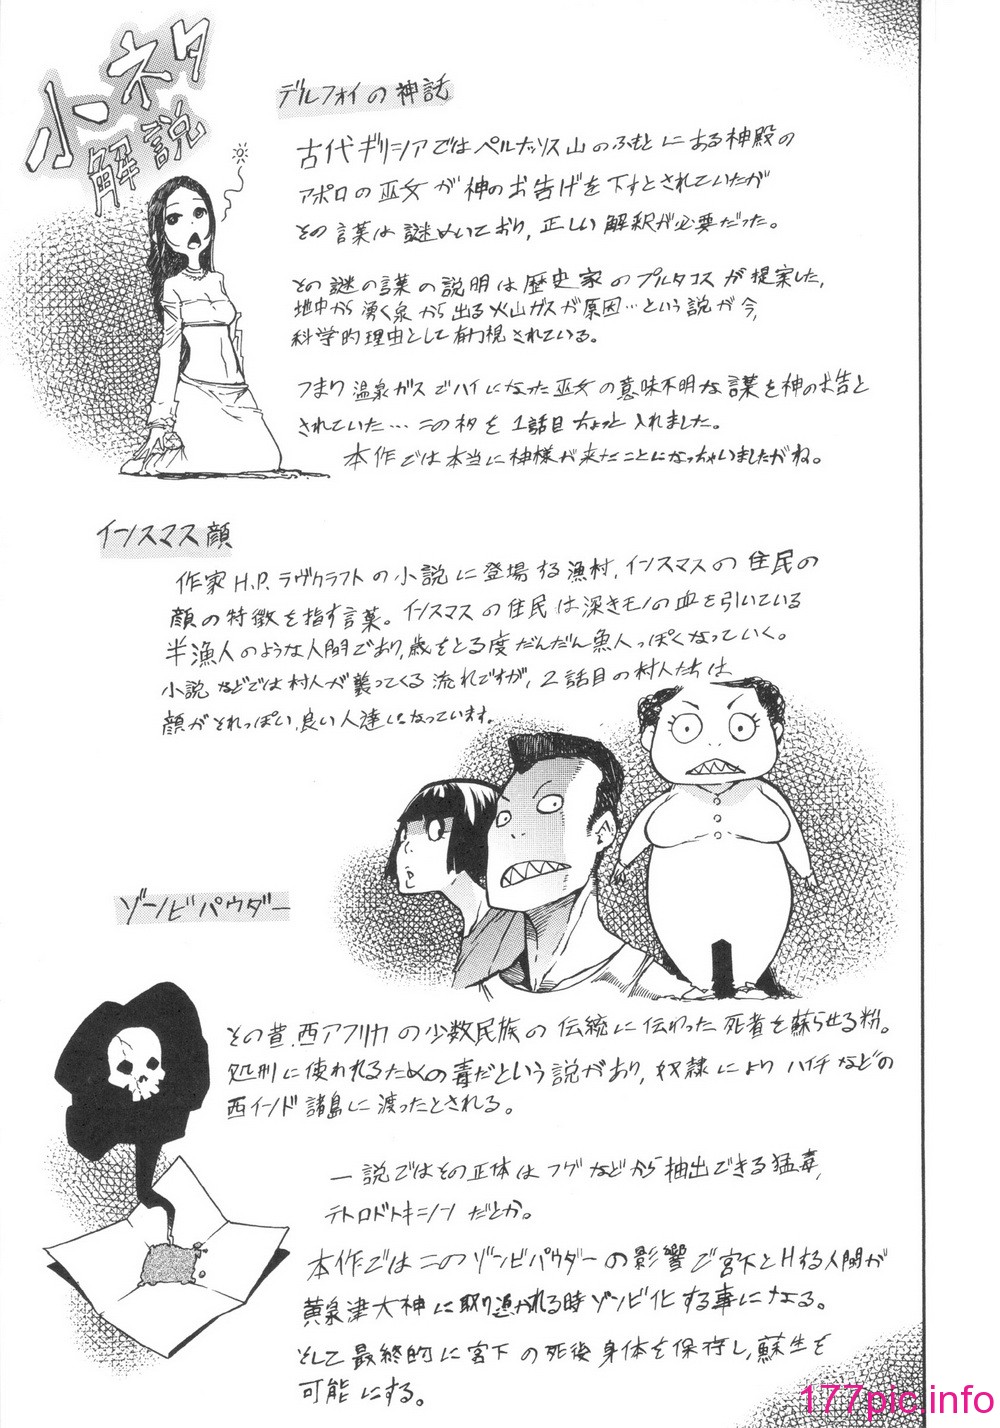 小ネタ
解説
デルフォイの神託
古代ギリシアではペルナッソス山のふもとにある神殿の
アポロの巫女が神のお告げを下すとされていたが
その言葉は謎めいており、正しい解釈が必要だった。
その謎の言葉の説明は歴史家のプルタコスが提案した、
地中から湧く泉から出る火山ガスが原因…という説が今、
科学的理由として有力視されている。
つまり温泉ガスでハイになった巫女の意味不明な言葉を神のお告と
されていた…このネタを1話目ちょっと入れました。
本作では本当に神様が来たことになっちゃいましたがね。
インスマス顔
作家H.P.ラヴクラフトの小説に登場する漁村、インスマスの住民の
顔の特徴を指す言葉。インスマスの住民は深きモノの血を引いている
半漁人のような人間であり、歳をとる度だんだん魚人っぽくなっていく。
小説などでは村人が襲ってくる流れですが、2話目の村人たちは
顔がそれっぽい、良い人達になっています。
ゾンビパウダー
その昔、西アフリカの少数民族の伝統に伝わった死者を蘇らせる粉。
処刑に使われるための毒だという説があり、奴隷によりハイチなどの
西インド諸島に渡ったとされる。
一説ではその正体はフグなどから抽出できる猛毒、
テトロドトキシンだとか。
本作ではこのゾンビパウダーの影響で宮下とHする人間が
黄泉津大神に取り憑かれる時ゾンビ化する事になる。
そして最終的に宮下の死後身体を保存し、蘇生を
可能にする。
177pic.info